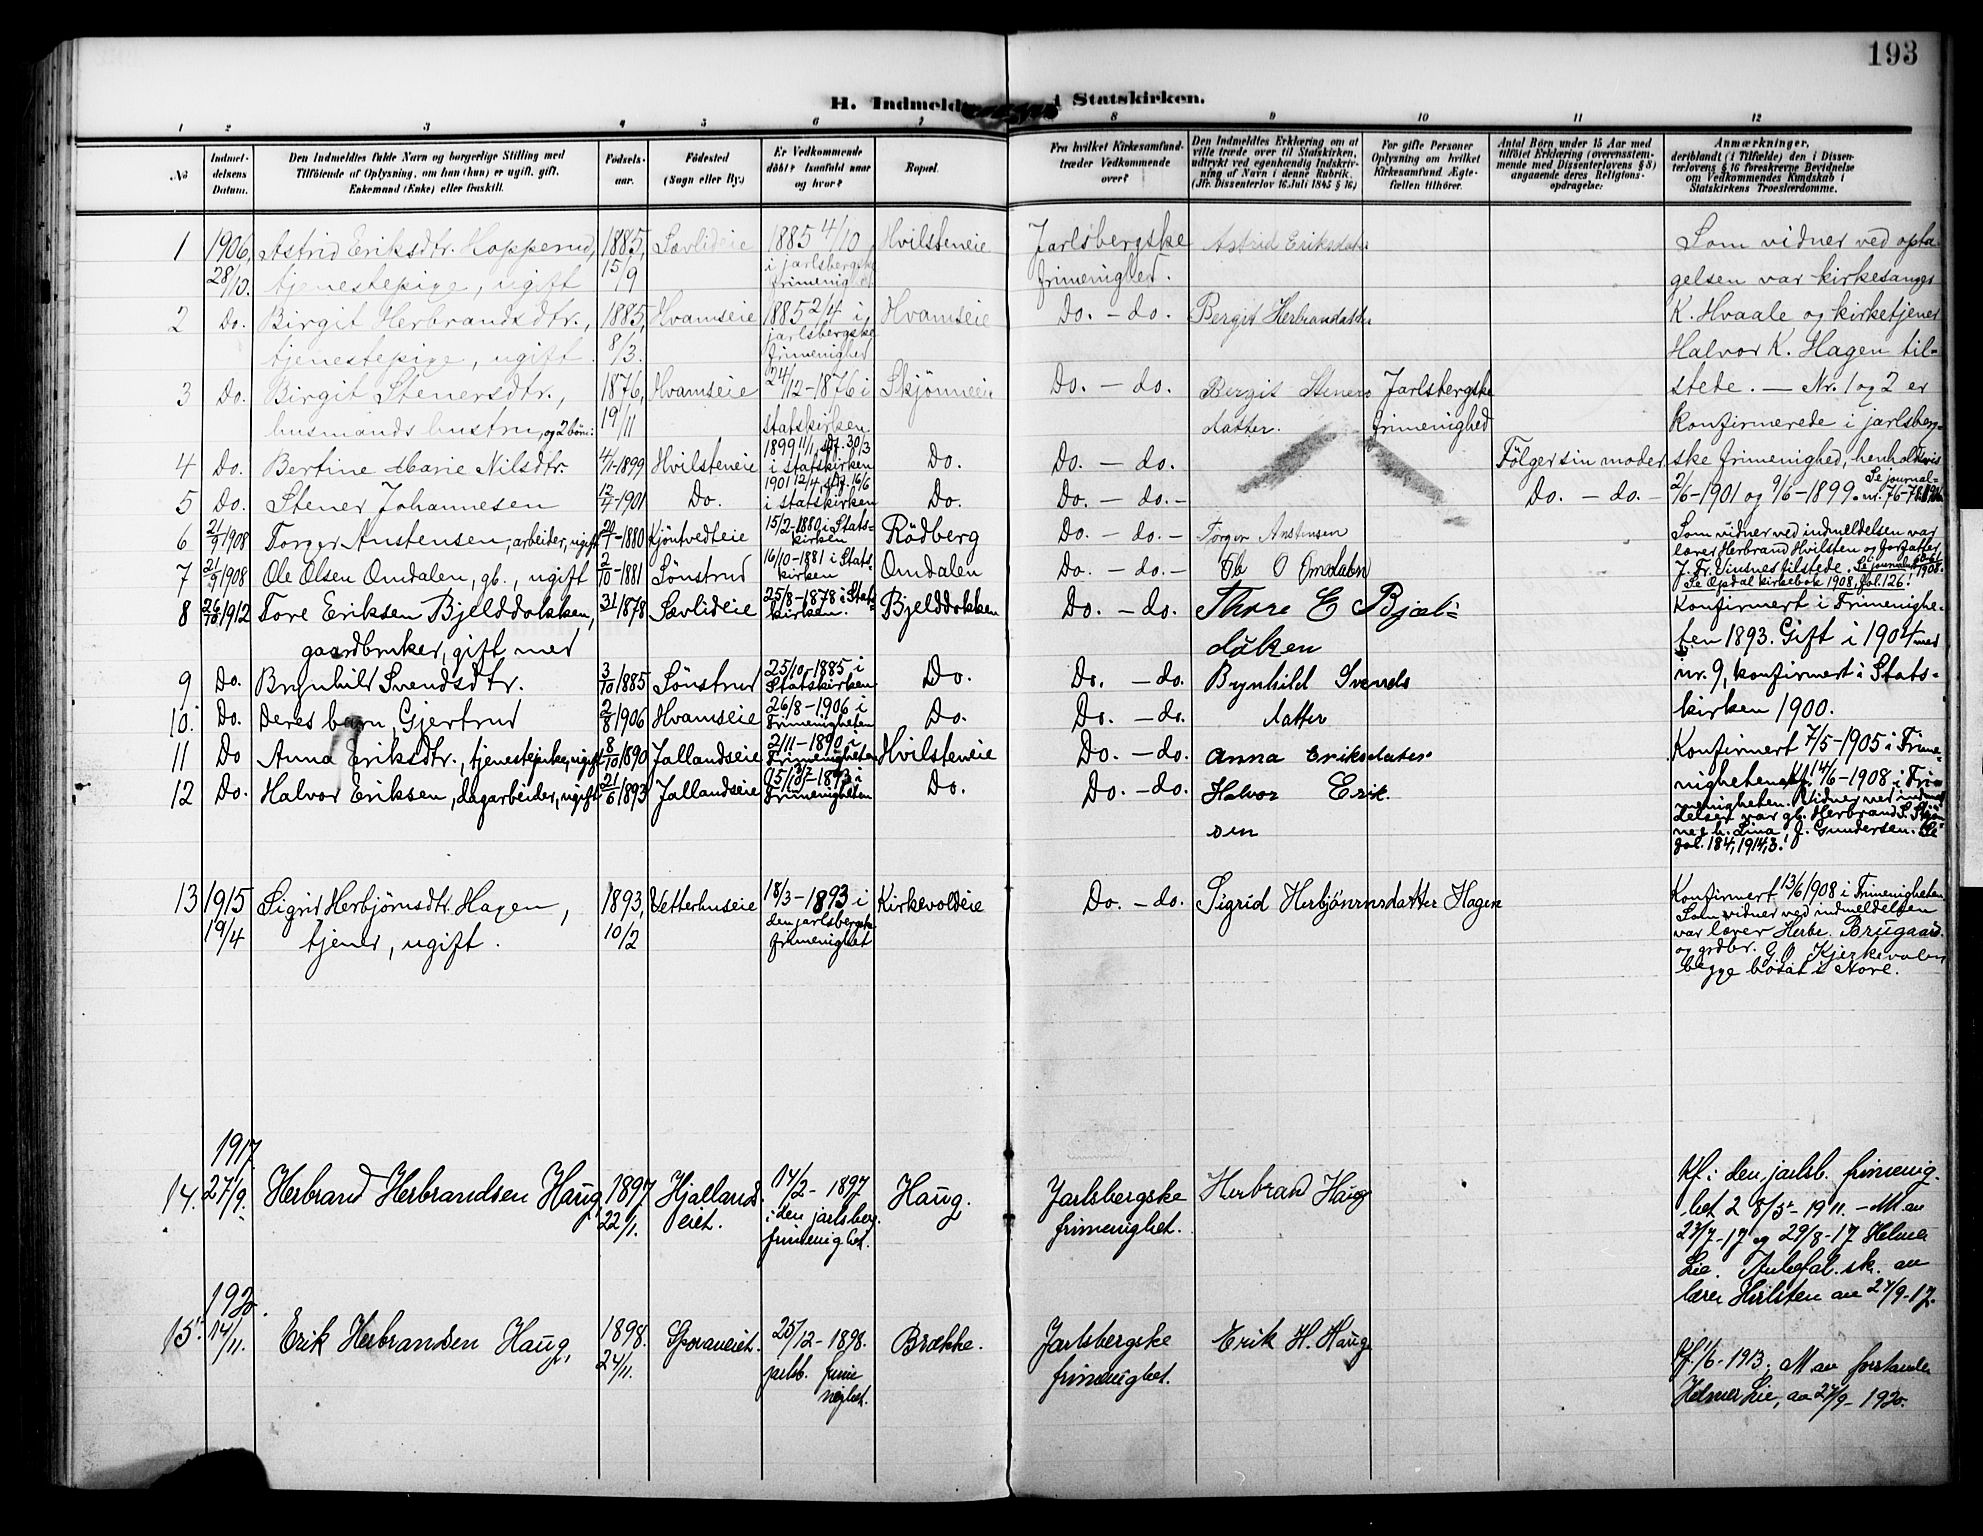 193
H. Indmeldte i Statskirken.
1 2 3 4 5 6 7 8 9 10 11 12
No
Indmeldelsens Datum.
Den Indmeldtes fulde Navn og borgerlige Stilling med
Tilföiende af Oplysning, om han (hun) er ugift, gift,
Enkemand (Enke) eller fraskilt.
Födsels-
aar.
Födested
(Sogn eller By.)
Er Vedkommende
döbt? Isaafald naar
og hvor?
Bopæl.
Fra hvilket Kirkesamfund-
træder Vedkommende
over?
Den Indmeldtes Erklæring om at
ville træde over til Statskirken,
udtrykt ved egenhændig Indskriv-
ning af Navn i denne Rubrik.
(Jfr. Dissenterlov 16. Juli 1845 § 16.)
For gifte Personer
Oplysning om hvilket
Kirkesamfund Ægte-
fællen tilhörer.
Antal Börn under 15 Aar med
tilföiet Erklæring (overensstem-
mende med Dissenterlovens § 8)
angaaende deres Religions-
opdragelse:
Anmærkninger,
deriblandt (i Tilfælde) den i Dissen-
terlovens § 16 foreskrevne Bevidnelse
om Vedkommendes Kundskab i
Statskirkens Troeslærdomme.
1 1906, Astrid Eriksdtr. Hopperud, 1885, Sævlideie 1885 4/10 Hvilsteneie Jarlsbergske Astrid Eriksdatter
28/10. tjenestepige, ugift 15/9 i jarlsbergske frimenighed frimenighed.
2 Do. Birgit Herbrandsdtr., 1885, Hvamseie 1885 2/4 i Hvamseie Do. – do. Bergit Herbrandatter
tjenestepige, ugift 8/3. jarlsbergske frimenighed
3 Do. Birgit Stenersdtr., 1876, Hvamseie 24/12 – 1876 i Skjönneie Do. – do. Bergit Steners Jarlsbergske
husmands hustru, og 2 börn: 19/11 statskirken datter. frimenighed
4 Do. Bertine Marie Nilsdtr. 4/1-1899 Hvilsteneie 1899 11/1, st.f. 30/3 i statskirken Do. Do. – do. Fölger sin moder
5 Do. Stener Johannesen 12/4-1901 Do. 1901 12/4 st.f. 16/6 i statskirken Do. Do. – do. – Do. – do. –
Som vidner ved opta-
gelsen var kirkesanger
K. Hvaale og kirketjener
Halvor K. Hagen til-
stede. – Nr. 1 og 2 er
konfirmerede i jarlsberg-
ske frimenighed, henholdsvis
2/6-1901 og 9/6-1899. Se journal-
nr. 76-78
6 21/9 1908 Torger Anstensen, arbeider, ugift 20/1-1880 Kjöntvedteie 15/2-1880 i Stats-kirken Rödberg Do. – do. – Torger Anstensen
7 21/9 1908 Ole Olsen Omdalen, gb., ugift 2/10-1881 Sönstrud 16/10-1881 i Stats-kirken Omdalen Do. – do. – Ole O Omdalen
Som vidner ved indmeldelsen var
lærer Herbrand Hvilsten og
tilstede. Se journal 1908.
Se Opdal kirkebok 1908, fol. 126!
8 26/10 1912 Tore Eriksen Bjelddokken, 31/7 1878 Sævlideie 25/8-1878 i Stats-kirken. Bjelddokken Do. – do. Thore E Bjæl-
gaardbruker, gift med döken
9 Do. Brynhild Svendsdtr. 3/10 1885 Sönstrud 25/10-1885 i Statskirken Do. Do. – do. Bynhild Svends
10. Do. Deres barn Gjertrud 2/8 1906 Hvamseie 26/8-1906 i Frimenigheten Do. Do. – do. datter
11 Do Anna Eriksdtr., tjenestepike, ugift 8/10 1890 Jallandseie 2/11-1890 i Frimenigheten Hvilsteneie Do. – do. Anna Eriksdater
12 Do. Halvor Eriksen, dagarbeider, ugift 21/6 1893 Jallandseie 1893 i Frimenigheten Do. Do. – do. Halvor Erik.
sen
Konfirmert i Frimenighe-
ten 1893. Gift i 1904 med
nr. 9, konfirmert i Stats-
kirken 1900.
Konfirmert 7/5-1905 i Frime-
nigheten. 14/6-1908 i Fri-
menigheten. Vidner ved indmel-
delsen var gb. Herbrand S. Skjön-
ne J. Gundersen. Se
fol. 184, 1914, 3!
13 1915 Sigrid Herbjörnsdtr. Hagen, 1893, Vetterhuseie 18/3-1893 i Kirkevoldeie Do. – do. Sigrid Herbjönrnsdatter Hagen
19/4 tjener, ugift. 10/2 den jarlsbergske frimenighet
Konfirmert 13/6 1908 i Frimenigheten
Som vidner ved indmeldelsen
var lærer Herbr. Brugaard
og grdbr. G. O. Kjerkevolen
begge bosat i Nore.
1917.
14. 27/9. Herbrand Herbrandsen Haug, 1897 Hjallands- 14/2 – 1897 Haug. Jarlsbergske Herbrand Haug
22/1. eiet. i den jarlsberg. frimenighet. frimenighet.
Kf. i den jarlsb. frimenig-
het 28/5 – 1911. – M av
27/7-17 og 29/8-17 Helmer
Lie. Anbefal. sk. av
lærer Hvilsten av 27/9-17.
1920.
15. 14/11. Erik Herbrandsen Haug, 1898. 25/12 – 1898. Brække. Jarlsbergske Erik H. Haug
24/11. jarlsb. frimenighet. frimenighet.
Kf. 1/6 – 1913. M av forstander
Helmer Lie, av 27/9 – 1920.